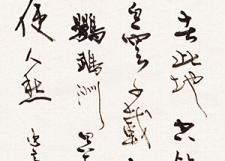 去此地空
白雲千載
鸚鵡洲日
使人愁